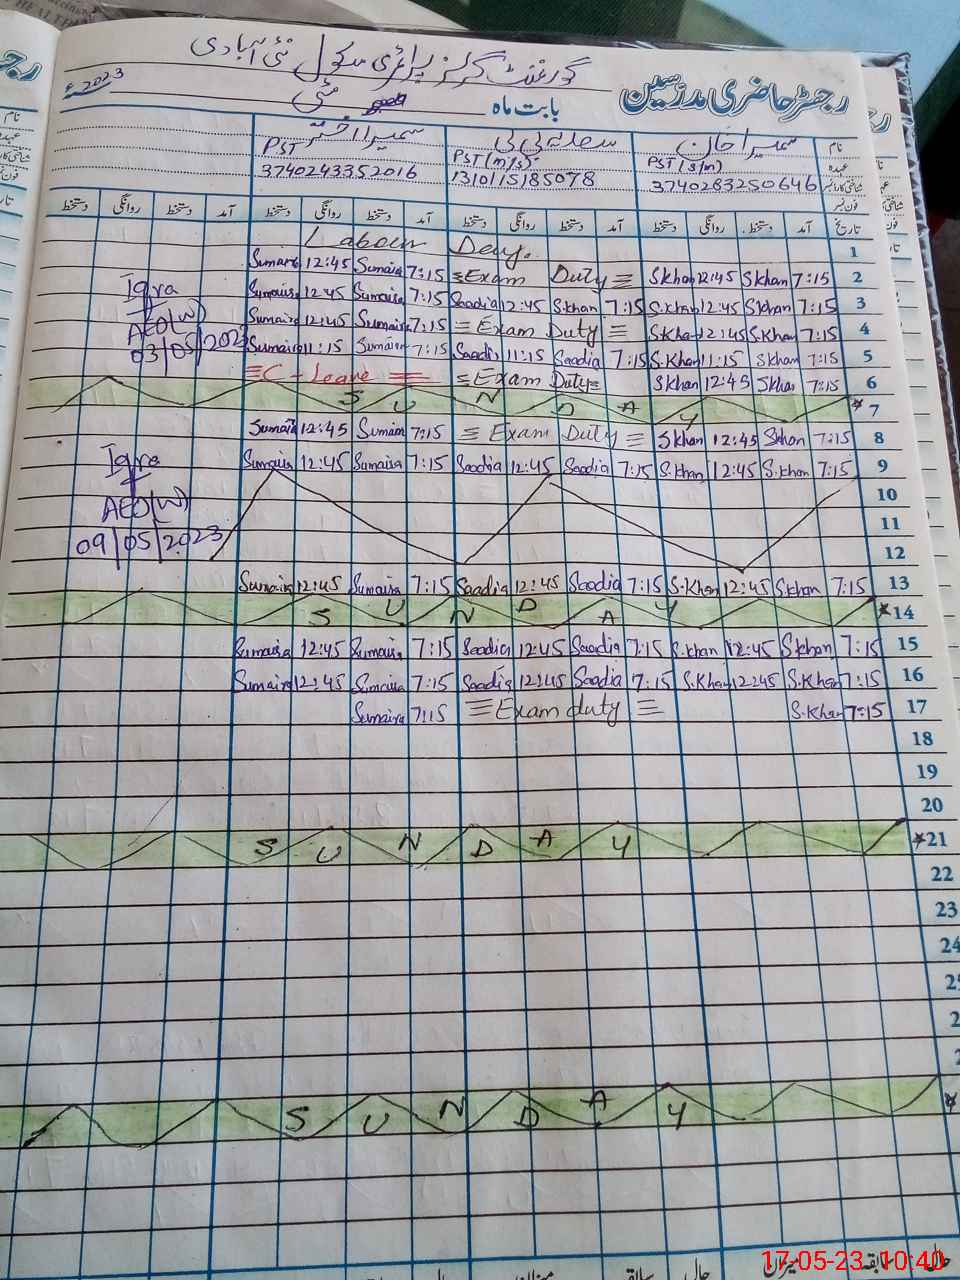 گورنمنٹ گرلز پرائمری سکول نئی آبادی
رجسٹر حاضری مدرسین
بابت ماہ مئی 2023ء
نام سمیرا خان سعدیہ بی بی سمیرا اختر
عہدہ PST (s/m) PST (m/s) PST
شناختی کارڈ نمبر 3740283250646 1310115185078 3740243352016
فون نمبر
تاریخ آمد دستخط روانگی دستخط آمد دستخط روانگی دستخط آمد دستخط روانگی دستخط آمد دستخط روانگی دستخط
Labour Day. 1
Sumaira 12:45 Sumaira 7:15 Exam Duty S Khan 12:45 S Khan 7:15 2
Iqra Sumaira 12:45 Sumaira 7:15 Saadia 12:45 S.khan 7:15 S.Khan 12:45 S Khan 7:15 3
AEO(W) Sumaira 12:45 Sumaira 7:15 Exam Duty S Kha 12:45 S.Khan 7:15 4
03/05/2023 Sumaira 11:15 Sumaira 7:15 Saadia 11:15 Saadia 7:15 S.Khan 11:15 S Khan 7:15 5
C-Leave Exam Duty S Khan 12:45 S Khan 7:15 6
SUNDAY 7
Sumaira 12:45 Sumaira 7:15 Exam Duty S Khan 12:45 S Khan 7:15 8
Iqra Sumaira 12:45 Sumaira 7:15 Saadia 12:45 Saadia 7:15 S.Khan 12:45 S.Khan 7:15 9
AEO(W) 10
09/05/2023 11
12
Sumaira 12:45 Sumaira 7:15 Saadia 12:45 Saadia 7:15 S.Khan 12:45 S.khan 7:15 13
SUNDAY 14
Sumaira 12:45 Sumaira 7:15 Saadia 12:45 Saadia 7:15 S.khan 12:45 S khan 7:15 15
Sumaira 12:45 Sumaira 7:15 Saadia 12:45 Saadia 7:15 S.Khan 12:45 S.Khan 7:15 16
Sumaira 7:15 Exam duty S.Khan 7:15 17
18
19
20
SUNDAY 21
22
23
24
SUNDAY
17-05-23 10:40
میزان سابقہ حال